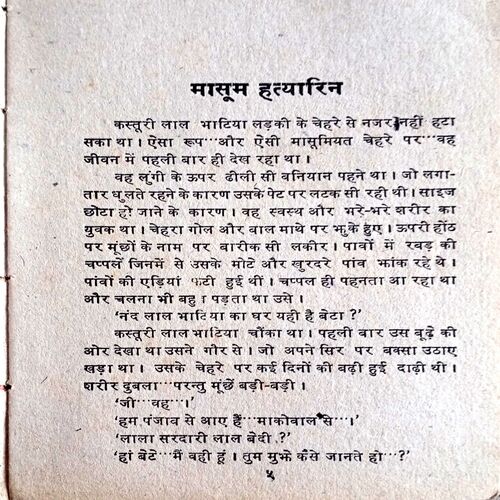 मासूम हत्यारिन
कस्तूरी लाल भाटिया लड़की के चेहरे से नजर नहीं हटा
सका था। ऐसा रूप···और ऐसी मासूमियत चेहरे पर···वह
जीवन में पहली बार ही देख रहा था।
वह लुंगी के ऊपर ढीली सी बनियान पहने था। जो लगा-
तार धुलते रहने के कारण उसके पेट पर लटक सी रही थी। साइज
छोटा हो जाने के कारण। वह स्वस्थ और भरे-भरे शरीर का
युवक था। चेहरा गोल और बाल माथे पर झुके हुए। ऊपरी होंठ
पर मूंछों के नाम पर बारीक सी लकीर। पावों में रबड़ की
चप्पलें जिनमें से उसके मोटे और खुरदरे पांव झांक रहे थे।
पांवों की एड़ियां फटी हुई थीं। चप्पल ही पहनता आ रहा था
और चलना भी बहुत पड़ता था उसे।
'नंद लाल भाटिया का घर यही है बेटा?'
कस्तूरी लाल भाटिया चौंका था। पहली बार उस बूढ़े की
ओर देखा था उसने गौर से। जो अपने सिर पर बक्सा उठाए
खड़ा था। उसके चेहरे पर कई दिनों की बढ़ी हुई दाढ़ी थी।
शरीर दुबला···परन्तु मूंछें बड़ी-बड़ी।
'जी···वह।'
'हम पंजाब से आए हैं···माकोवाल से···।'
'लाला सरदारी लाल बेदी?'
'हां बेटे···मैं वही हूं। तुम मुझे कैसे जानते हो···?'
५